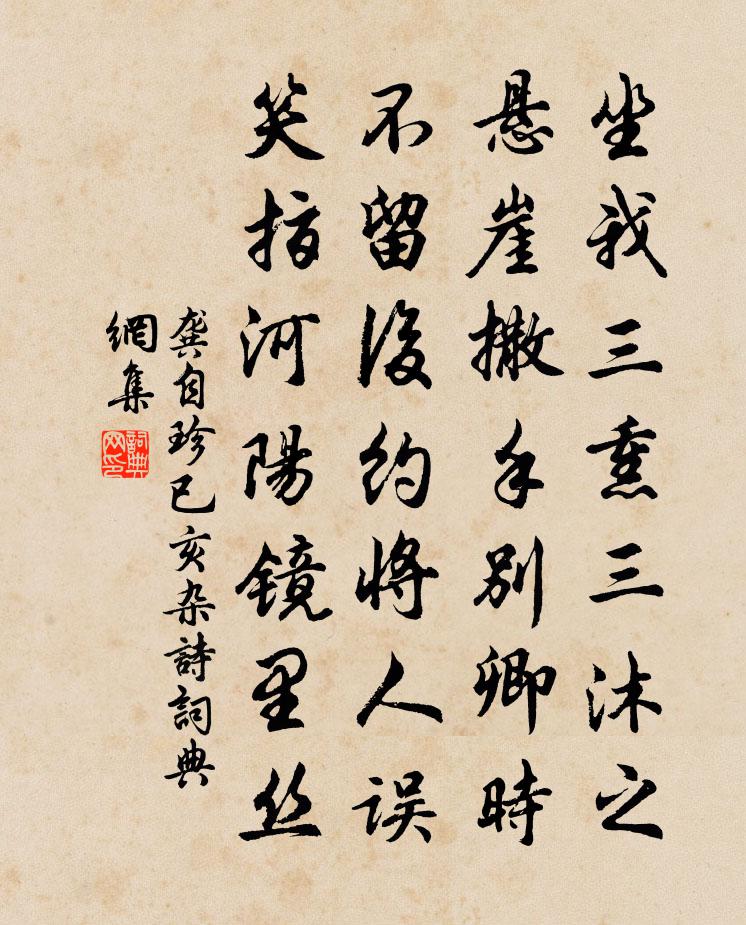 坐我三熏三沐之
悬崖撒手别卿時
不留後约將人误
笑指河陽镜里丝
龔自珍己亥杂詩詞典
網集
詞典網印